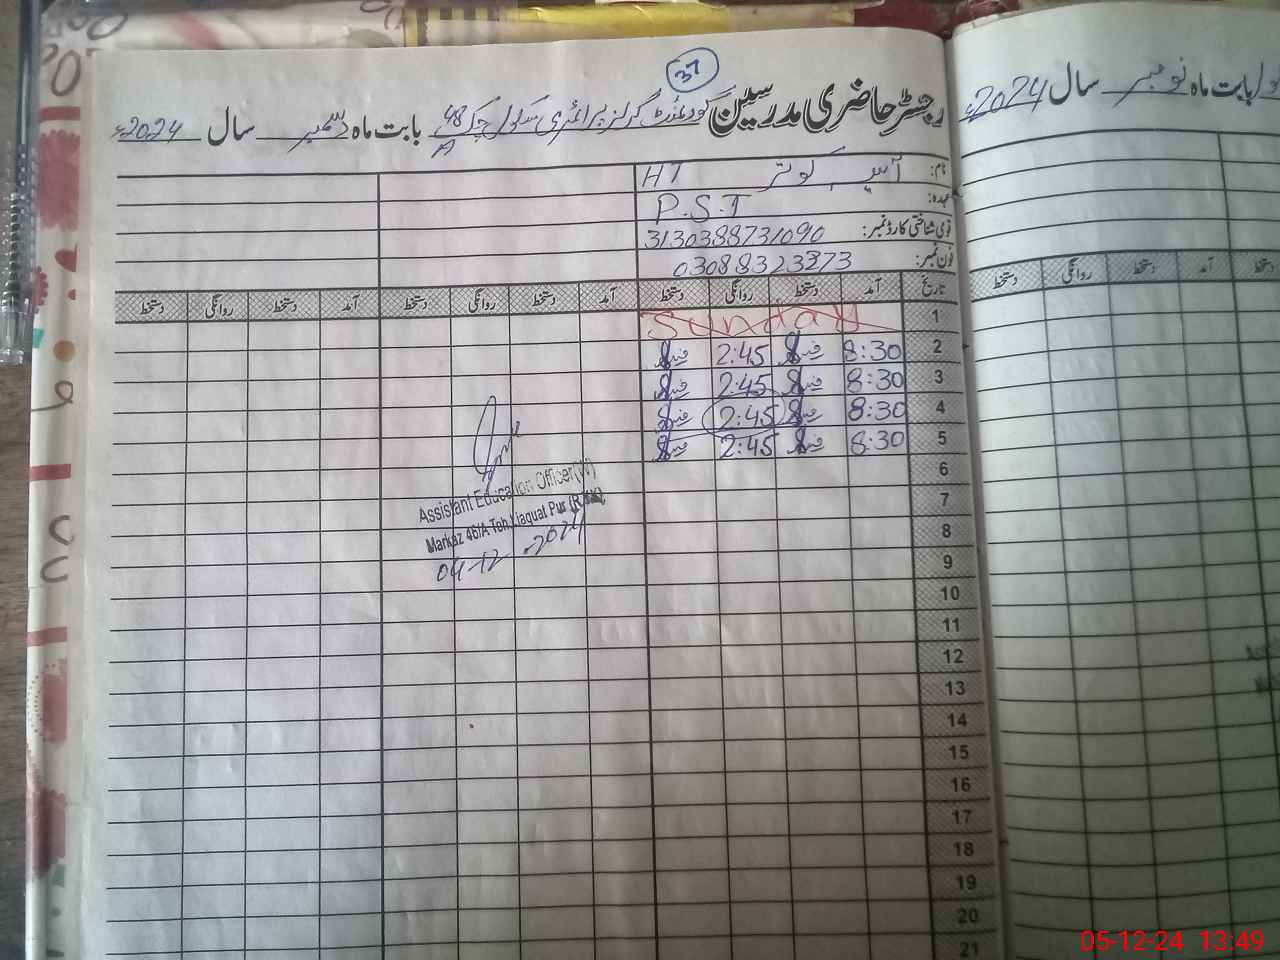 37
رجسٹر حاضری مدرسین گورنمنٹ گرلز پرائمری سکول چک 48/A بابت ماہ دسمبر سال 2024ء
نام: آسیہ کوثر HT
عہدہ: P.S.T
قومی شناختی کارڈ نمبر: 3130388731090
فون نمبر: 03088323373
تاریخ آمد دستخط روانگی دستخط آمد دستخط روانگی دستخط آمد دستخط روانگی دستخط
1 Sunday
2 8:30 2:45
3 8:30 2:45
4 8:30 2:45
5 8:30 2:45
6
7
8
9
10
11
12
13
14
15
16
17
18
19
20
21
Assistant Education Officer (W)
Markaz 48/A Teh Liaquat Pur (RYK)
04-12-2024
بابت ماہ نومبر سال 2024ء
آمد دستخط روانگی دستخط
05-12-24 13:49